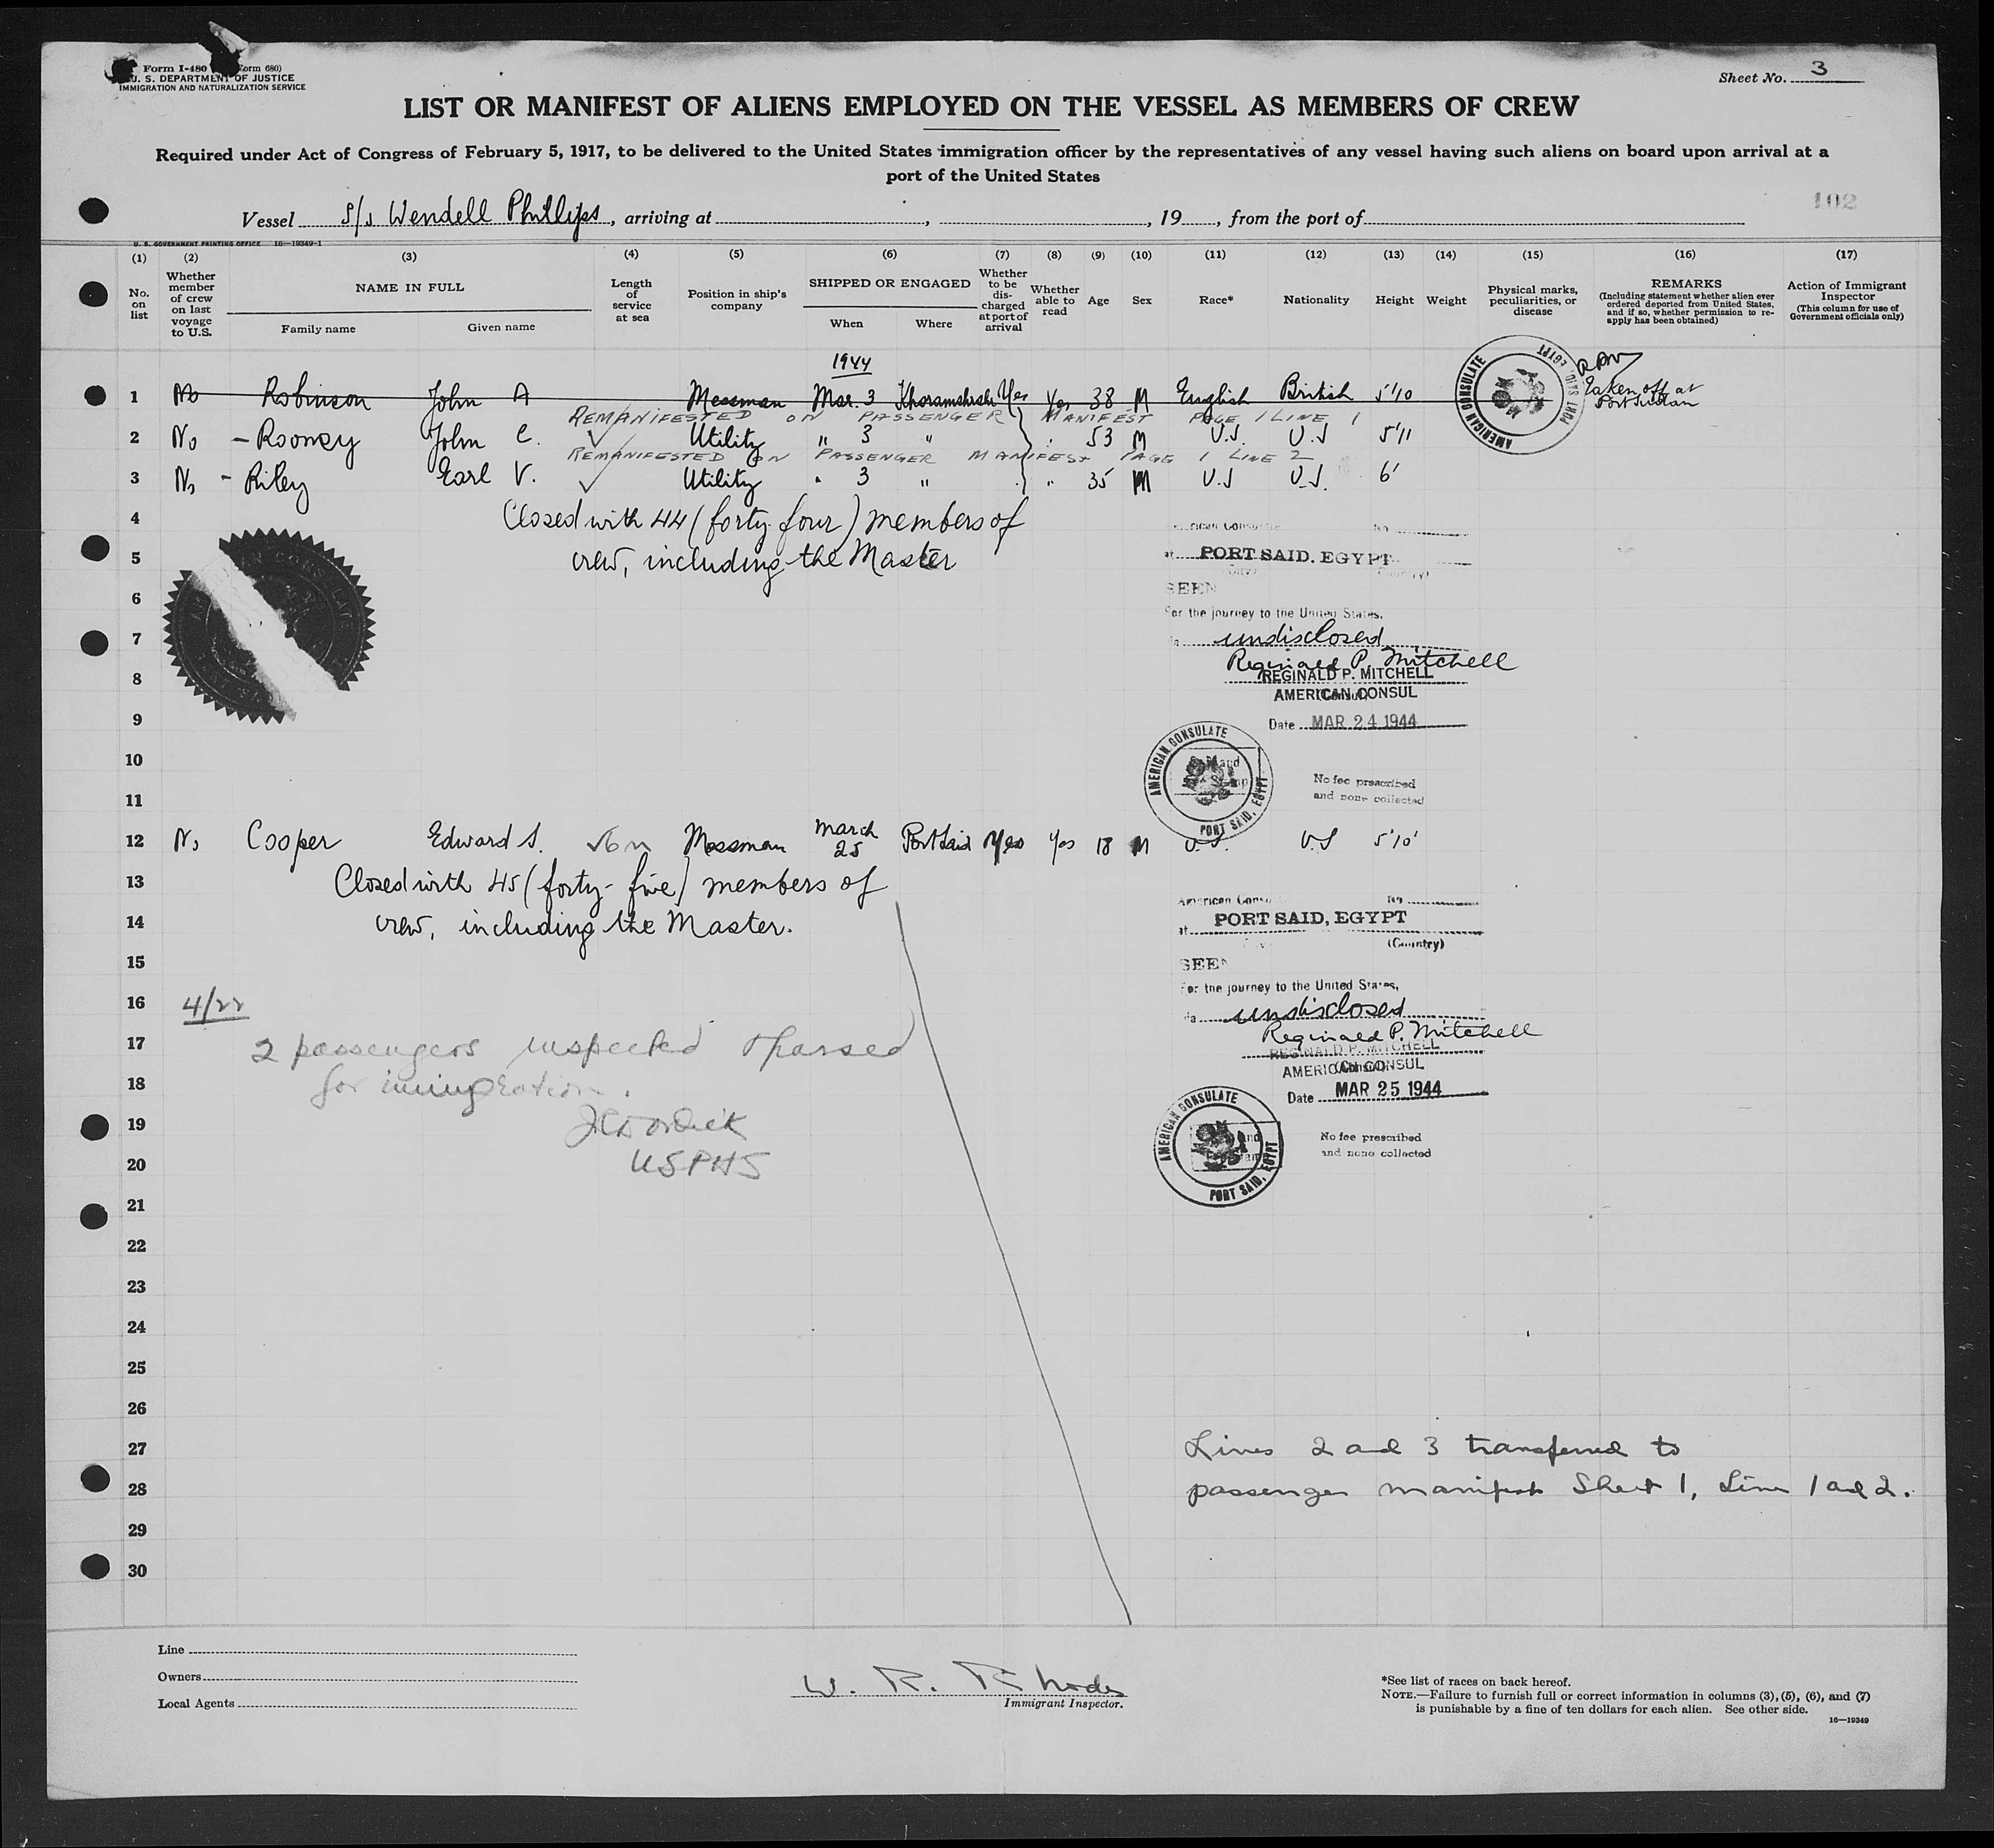 Form I-480 (Form 680)
U. S. DEPARTMENT OF JUSTICE
IMMIGRATION AND NATURALIZATION SERVICE
Sheet No. 3
LIST OR MANIFEST OF ALIENS EMPLOYED ON THE VESSEL AS MEMBERS OF CREW
Required under Act of Congress of February 5, 1917, to be delivered to the United States immigration officer by the representatives of any vessel having such aliens on board upon arrival at a
port of the United States
102
Vessel S/s Wendell Phillips, arriving at , , 19 , from the port of
U. S. GOVERNMENT PRINTING OFFICE 16—19349-1
(1) (2) (3) (4) (5) (6) (7) (8) (9) (10) (11) (12) (13) (14) (15) (16) (17)
No. on list
Whether member of crew on last voyage to U.S.
NAME IN FULL
Family name Given name
Length of service at sea
Position in ship's company
SHIPPED OR ENGAGED
When Where
Whether to be discharged at port of arrival
Whether able to read
Age
Sex
Race*
Nationality
Height
Weight
Physical marks, peculiarities, or disease
REMARKS
(Including statement whether alien ever ordered deported from United States, and if so, whether permission to reapply has been obtained)
Action of Immigrant Inspector
(This column for use of Government officials only)
1944
1 No Robinson John A Messman Mar. 3 Khoramshahr Yes Yes 38 M English British 5'10 Taken off at
Port Sudan
AMERICAN CONSULATE PORT SAID, EGYPT
REMANIFESTED ON PASSENGER MANIFEST PAGE 1 LINE 1
2 No - Rooney John C. ✓ Utility " 3 " " 53 M U.S. U.S 5'11
REMANIFESTED ON PASSENGER MANIFEST PAGE 1 LINE 2
3 No - Riley Earl V. ✓ Utility " 3 " " 35 M U.S U.S. 6'
4 Closed with 44 (forty four) members of
5 crew, including the Master
American Consulate No
at PORT SAID, EGYPT
(Country)
6 SEEN
For the journey to the United States,
7 via undisclosed
Reginald P. Mitchell
8 REGINALD P. MITCHELL
AMERICAN CONSUL
9 Date MAR 24 1944
10
AMERICAN CONSULATE PORT SAID, EGYPT
No fee prescribed
and none collected
11
12 No Cooper Edward S. Messman March 25 Port Said Yes Yes 18 M U.S. U.S 5'10
13 Closed with 45 (forty-five) members of
14 crew, including the Master.
American Consulate No
at PORT SAID, EGYPT
(Country)
15 SEEN
For the journey to the United States,
16 4/22
via undisclosed
Reginald P. Mitchell
17 2 passengers inspected & passed
REGINALD P. MITCHELL
AMERICAN CONSUL
18 for immigration.
Date MAR 25 1944
19
20 USPHS
AMERICAN CONSULATE PORT SAID, EGYPT
No fee prescribed
and none collected
21
22
23
24
25
26
27 Lines 2 and 3 transferred to
28 passenger manifest Sheet 1, Line 1 and 2.
29
30
Line
Owners
Local Agents
W. R. Rhodes
Immigrant Inspector.
*See list of races on back hereof.
NOTE.—Failure to furnish full or correct information in columns (3), (5), (6), and (7)
is punishable by a fine of ten dollars for each alien. See other side.
16—19349